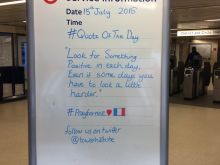 Service Information
Date 15th July 2015
Time
#Quote Of The Day
"Look for Something
Positive in each day,
Even if some days you
have to look a little
harder."
#Prayfornice
follow us on twitter